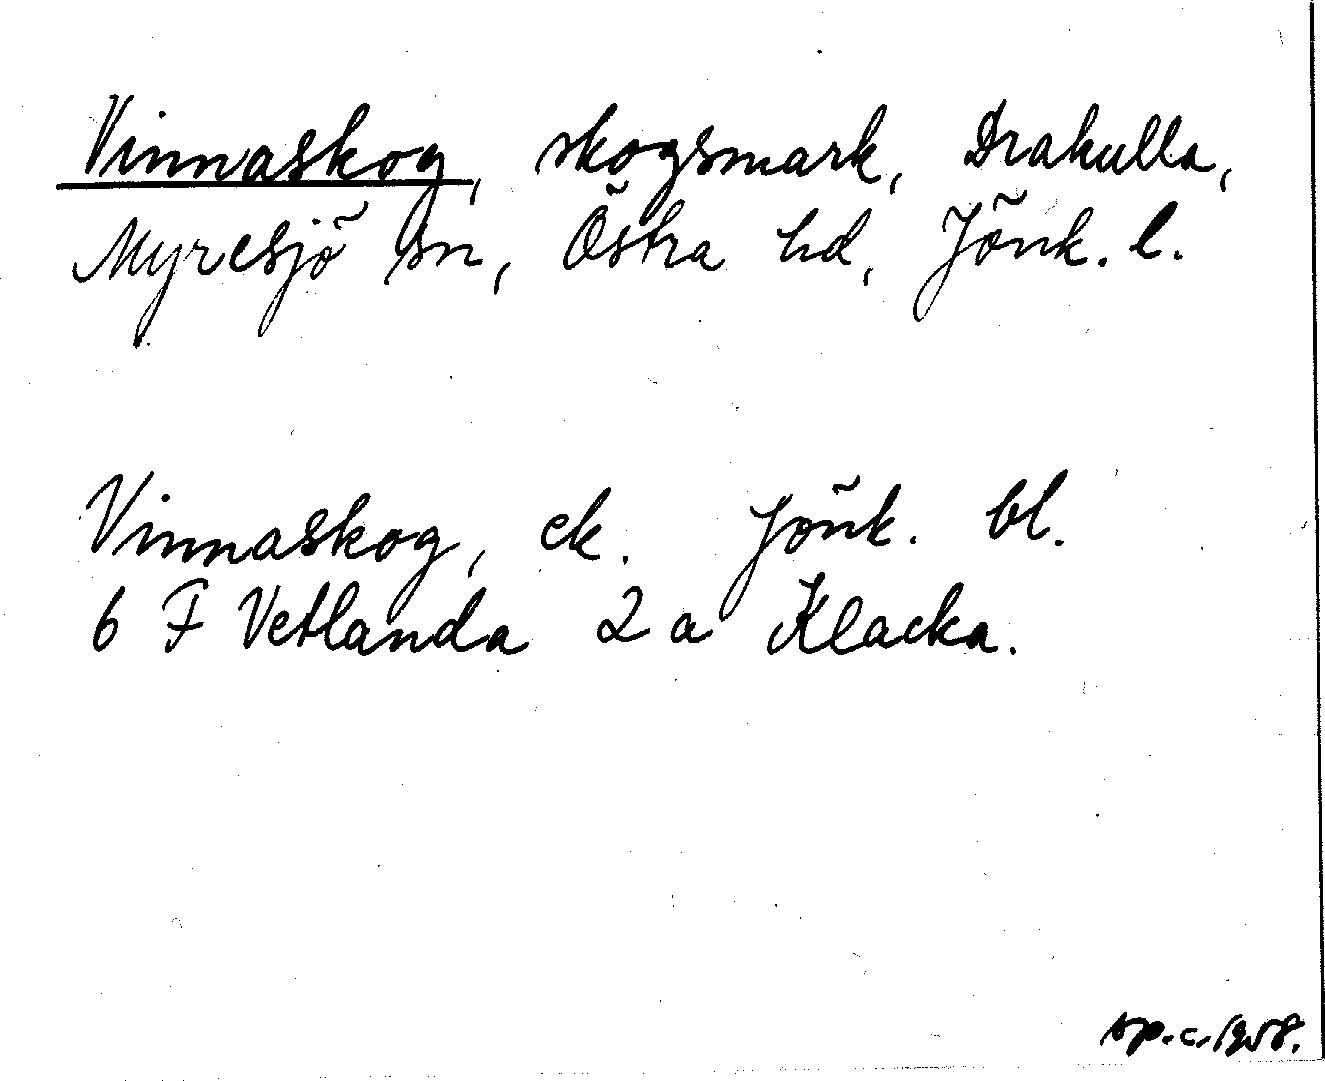 Vinnaskog, skogsmark, Drakulla,
Myresjö sn, Östra hd, Jönk. l.
Vinnaskog, ek. Jönk. bl.
6 F Vetlanda 2 a Klacka.
sp.c. 1958.